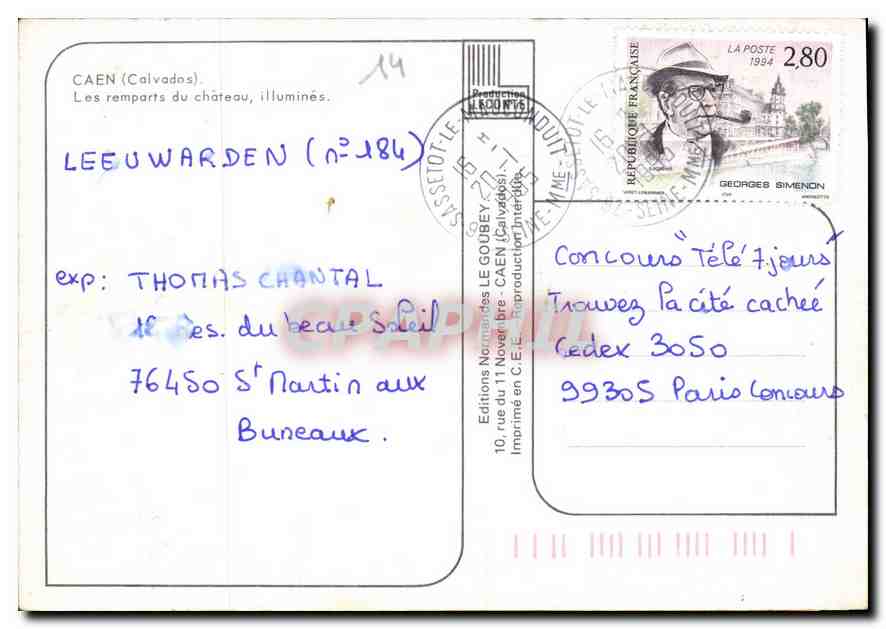 14
CAEN (Calvados).
Les remparts du château, illuminés.
LEEUWARDEN (nº 184)
exp: THOMAS CHANTAL
12 Rés. du beau Soleil
76450 St Martin aux
Buneaux.
Production
LECONTE
Editions Normandes LE GOUBEY
10, rue du 11 Novembre - CAEN (Calvados).
Imprimé en C.E.E. Reproduction Interdite
SASSETOT-LE-MAUCONDUIT
SEINE-MME
16 H
20-1
LA POSTE
1994
2,80
REPUBLIQUE FRANÇAISE
GEORGES SIMENON
Concours "Télé 7 jours"
Trouvez la cité cacheé
Cedex 3050
99305 Paris Concours
CPAPHIL